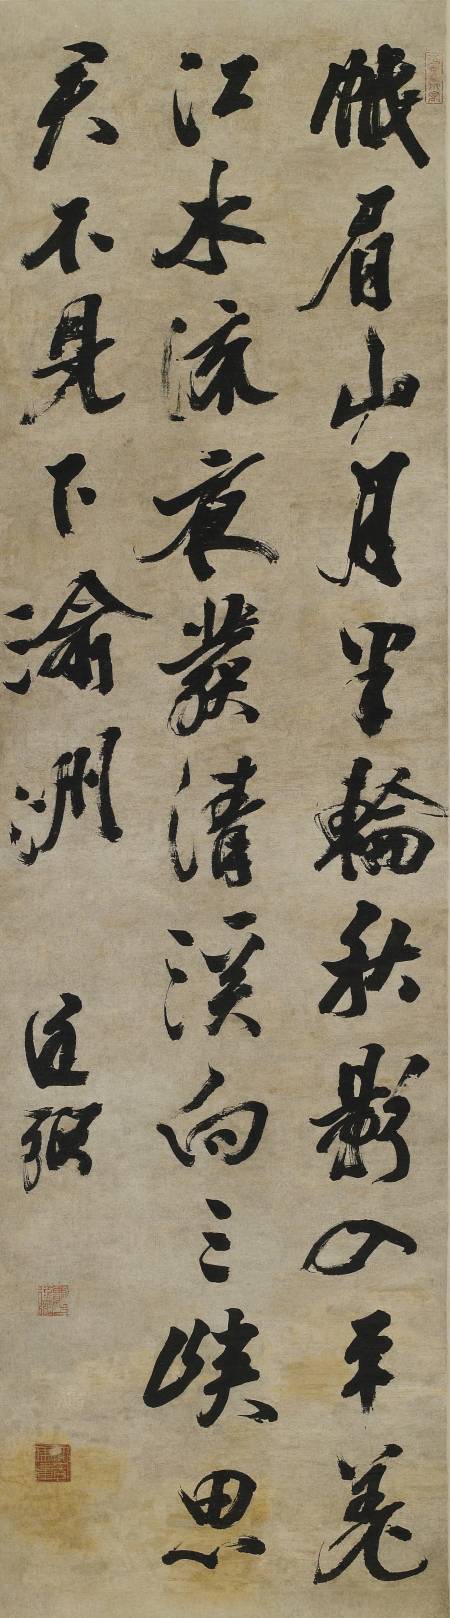 峨眉山月半輪秋影入平羌
江水流夜發清溪向三峽思
君不見下渝洲